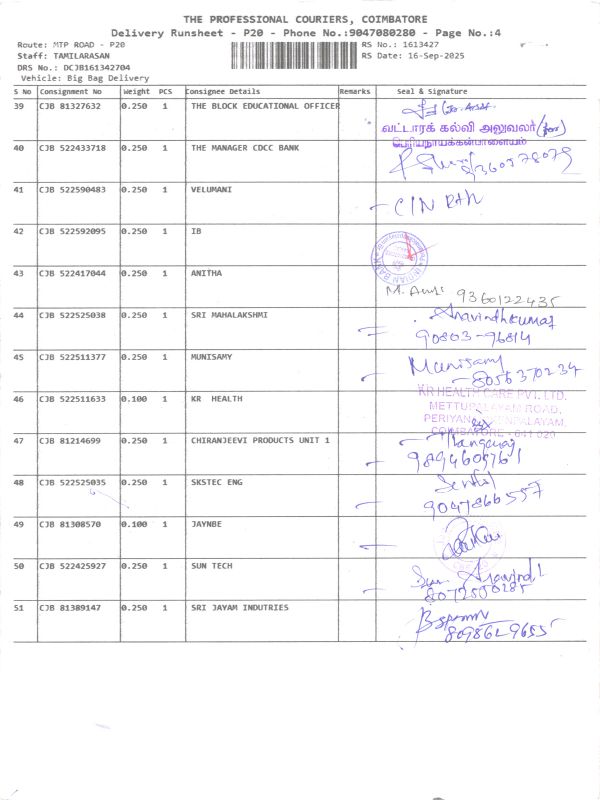 THE PROFESSIONAL COURIERS, COIMBATORE
Delivery Runsheet - P20 - Phone No.:9047080280 - Page No.:4
Route: MTP ROAD - P20
Staff: TAMILARASAN
DRS No.: DCJB161342704
Vehicle: Big Bag Delivery
RS No.: 1613427
RS Date: 16-Sep-2025
S No Consignment No Weight PCS Consignee Details Remarks Seal & Signature
39 CJB 81327632 0.250 1 THE BLOCK EDUCATIONAL OFFICER
வட்டாரக் கல்வி அலுவலர்
பெரியநாயக்கன்பாளையம்
40 CJB 522433718 0.250 1 THE MANAGER CDCC BANK
9360578079
41 CJB 522590483 0.250 1 VELUMANI
42 CJB 522592095 0.250 1 IB
INDIAN BANK
43 CJB 522417044 0.250 1 ANITHA
9360122435
44 CJB 522525038 0.250 1 SRI MAHALAKSHMI Aravindhkumar
90803-96814
45 CJB 522511377 0.250 1 MUNISAMY Munisamy
8056370234
46 CJB 522511633 0.100 1 KR HEALTH
KR HEALTH CARE PVT. LTD.
METTUPALAYAM ROAD,
COIMBATORE - 641 020
47 CJB 81214699 0.250 1 CHIRANJEEVI PRODUCTS UNIT 1 Thangaraj
9894605761
48 CJB 522525035 0.250 1 SKSTEC ENG Senthil
9047866557
49 CJB 81308570 0.100 1 JAYNBE
50 CJB 522425927 0.250 1 SUN TECH
8072500285
51 CJB 81389147 0.250 1 SRI JAYAM INDUTRIES
8098629655